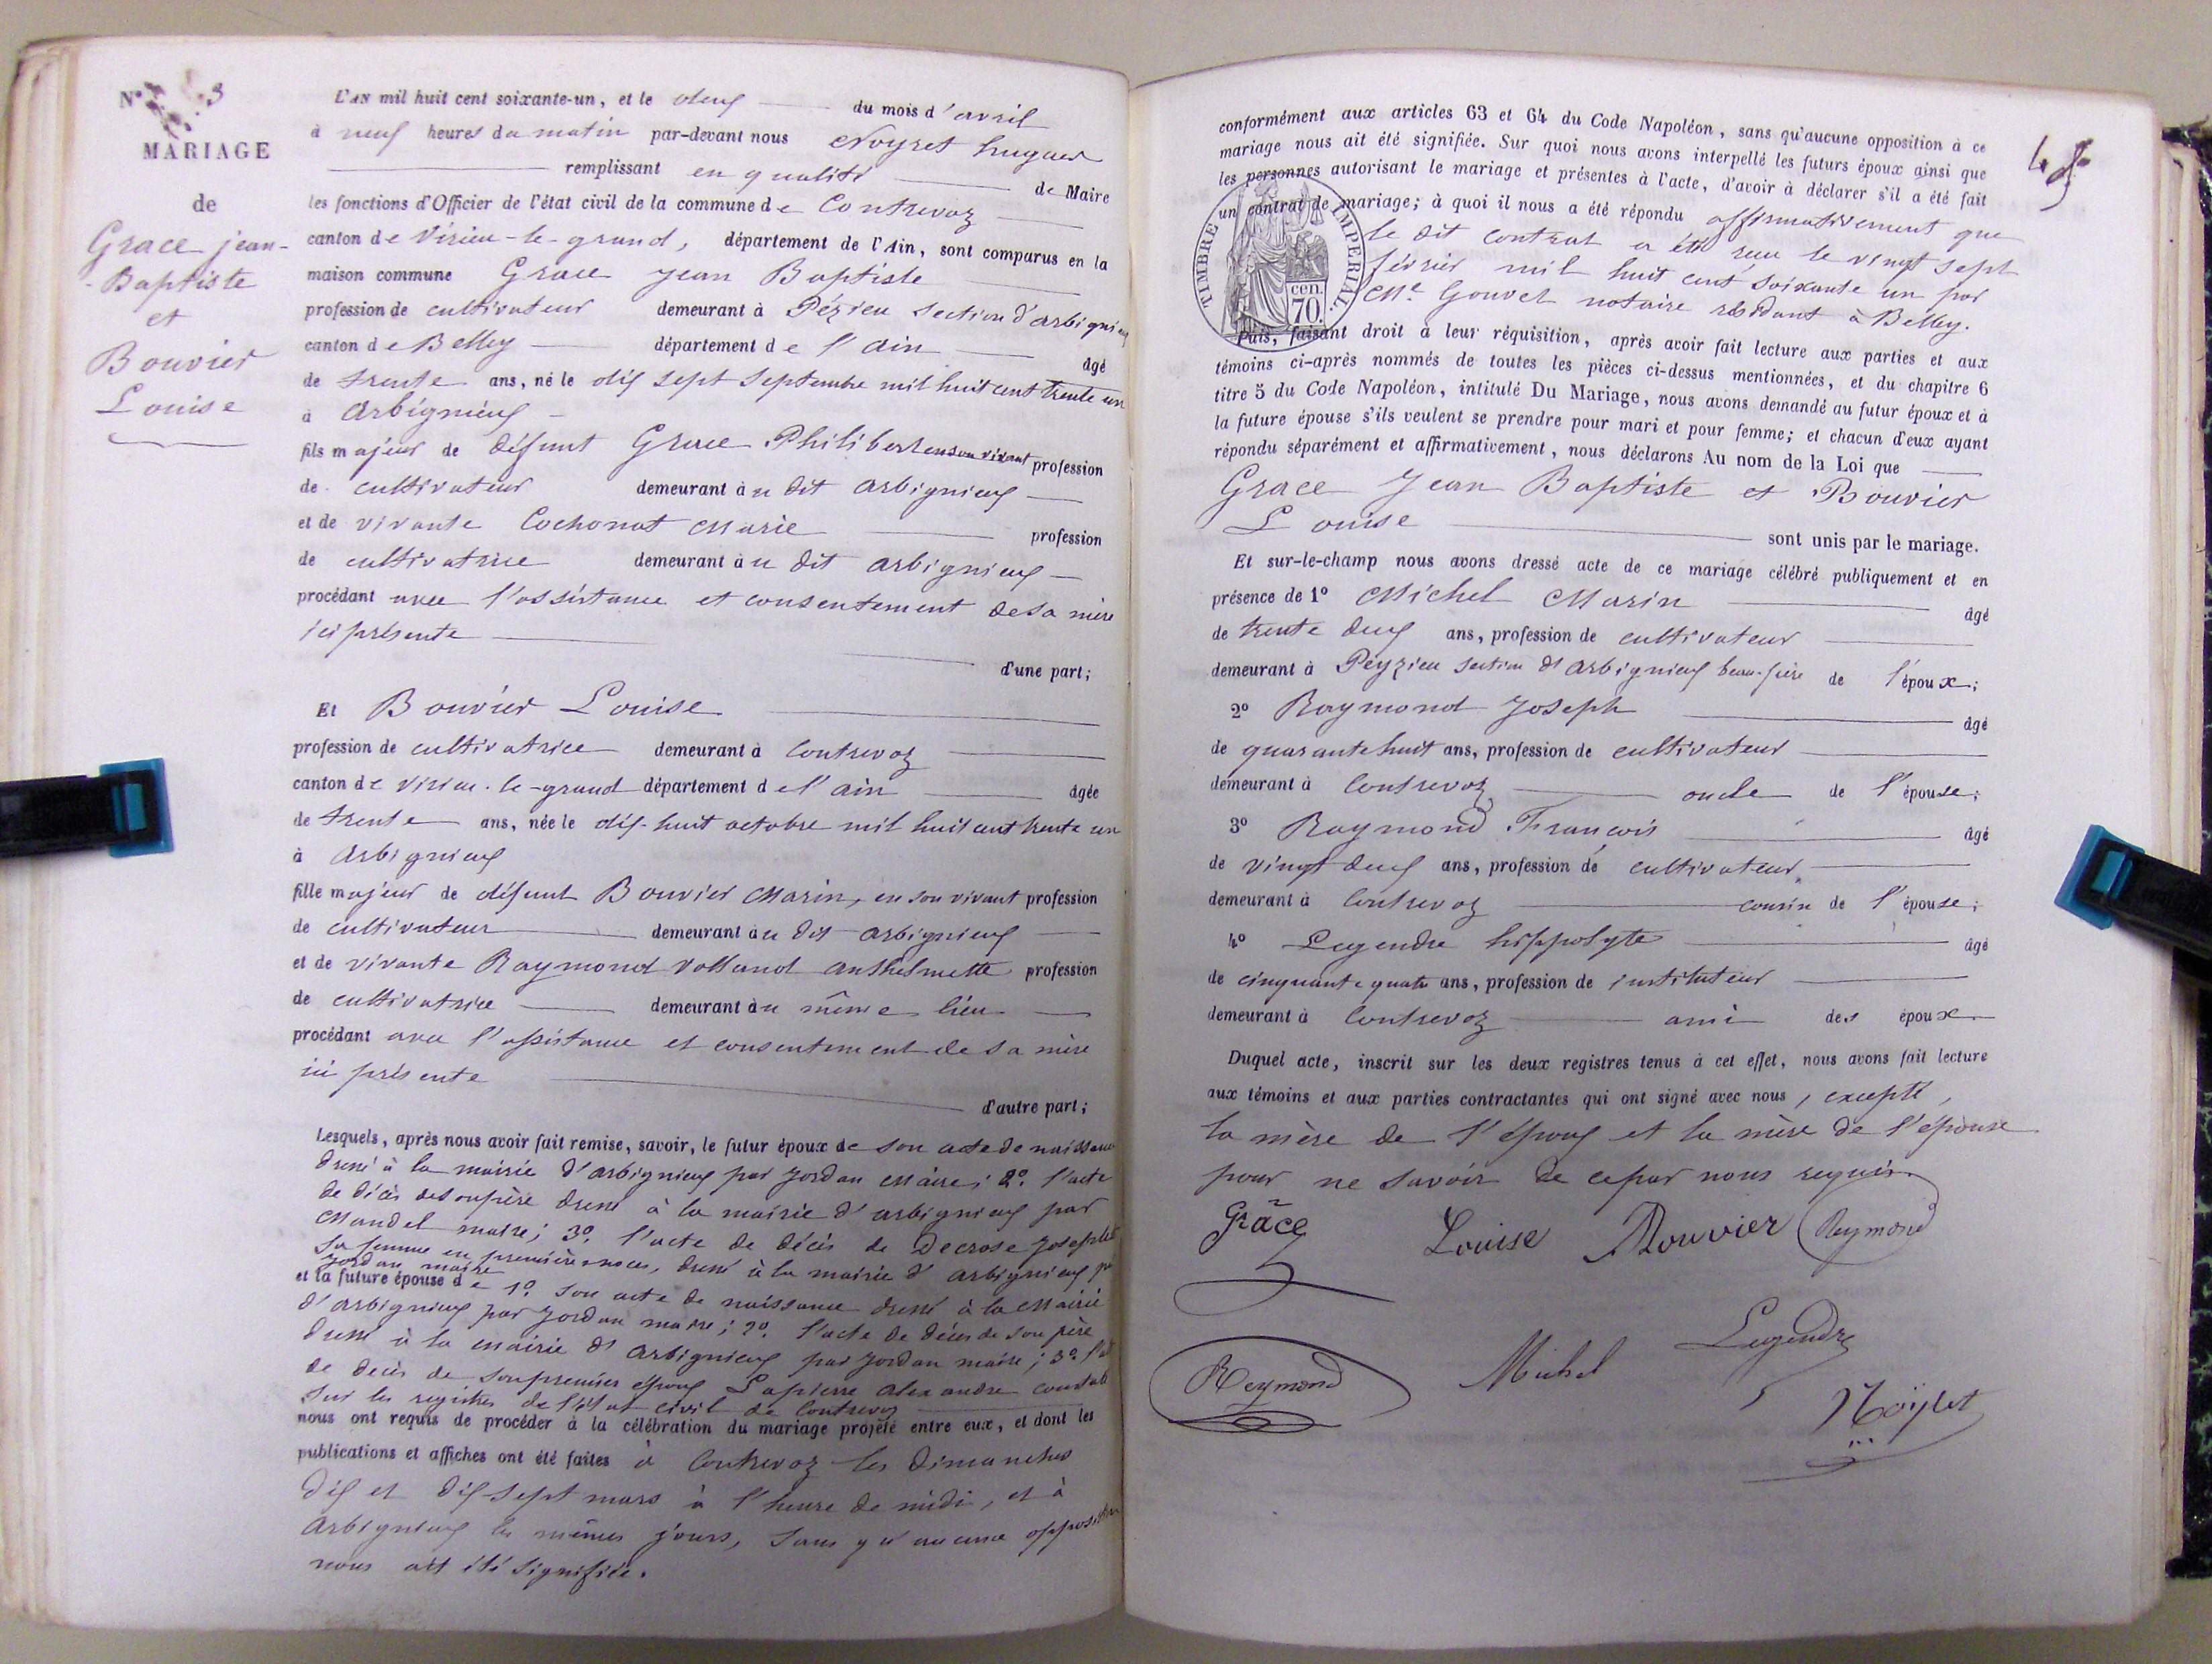 N° 3
MARIAGE
de
Grace jean-
-Baptiste
et
Bouvier
Louise
L'AN mil huit cent soixante-un, et le deux du mois d'avril
à neuf heures du matin par-devant nous Noyret hugues
remplissant en qualité de Maire
les fonctions d'Officier de l'état civil de la commune de Contrevoz
canton de Virieu-le-grand, département de l'Ain, sont comparus en la
maison commune Grace jean Baptiste
profession de cultivateur demeurant à Pézieu section d'arbignieu
canton de Belley département de l'ain âgé
de trente ans, né le dix sept septembre mil huit cent trente un
à arbignieux
fils majeur de défunt Grace Philibert en son vivant profession
de cultivateur demeurant au dit arbignieux
et de vivante Cochonat Marie profession
de cultivatrice demeurant au dit arbignieux
procédant avec l'assistance et consentement de sa mère
ici présente
d'une part;
Et Bouvier Louise
profession de cultivatrice demeurant à Contrevoz
canton de virieu-le-grand département de l'ain âgée
de trente ans, née le dix-huit octobre mil huit cent trente un
à arbignieux
fille majeur de défunt Bouvier Marin, en son vivant profession
de cultivateur demeurant au dit arbignieux
et de vivante Raymond Volland anthelmette profession
de cultivatrice demeurant au même lieu
procédant avec l'assistance et consentement de sa mère
ici présente
d'autre part;
Lesquels, après nous avoir fait remise, savoir, le futur époux de son acte de naissance
dressé à la mairie d'arbignieux par Jordan Maire; 2° l'acte
de décès de son père dressé à la mairie d'arbignieux par
Mandel maire; 3° l'acte de décès de Decrose Josephte
sa femme en premières noces, dressé à la mairie d'arbignieux par
Jordan maire
et la future épouse de 1° son acte de naissance dressé à la Mairie
d'arbignieux par Jordan maire; 2° l'acte de décès de son père
dressé à la mairie d'arbignieux par Jordan maire; 3° l'acte
de décès de son premier époux Lapierre alexandre constaté
sur les registres de l'état civil de Contrevoz
nous ont requis de procéder à la célébration du mariage projeté entre eux, et dont les
publications et affiches ont été faites à Contrevoz les dimanches
dix et dix-sept mars à l'heure de midi, et à
arbignieux les mêmes jours, sans qu'aucune opposition
nous ait été signifiée.
45
conformément aux articles 63 et 64 du Code Napoléon, sans qu'aucune opposition à ce
mariage nous ait été signifiée. Sur quoi nous avons interpellé les futurs époux ainsi que
les personnes autorisant le mariage et présentes à l'acte, d'avoir à déclarer s'il a été fait
un contrat de mariage; à quoi il nous a été répondu affirmativement que
le dit contrat a été reçu le vingt sept
février mil huit cent soixante un par
Me Gouvet notaire résidant à Belley.
TIMBRE IMPÉRIAL
cen.
70.
Puis, faisant droit à leur réquisition, après avoir fait lecture aux parties et aux
témoins ci-après nommés de toutes les pièces ci-dessus mentionnées, et du chapitre 6
titre 5 du Code Napoléon, intitulé Du Mariage, nous avons demandé au futur époux et à
la future épouse s'ils veulent se prendre pour mari et pour femme; et chacun d'eux ayant
répondu séparément et affirmativement, nous déclarons Au nom de la Loi que
Grace Jean Baptiste et Bouvier
Louise
sont unis par le mariage.
Et sur-le-champ nous avons dressé acte de ce mariage célébré publiquement et en
présence de 1° Michel Marin âgé
de trente deux ans, profession de cultivateur
demeurant à Peyzieu section d'arbignieux beau-frère de l'époux;
2° Raymond Joseph âgé
de quarante huit ans, profession de cultivateur
demeurant à Contrevoz oncle de l'épouse;
3° Raymond François âgé
de vingt deux ans, profession de cultivateur
demeurant à Contrevoz cousin de l'épouse;
4° Legendre hippolyte âgé
de cinquante quatre ans, profession de instituteur
demeurant à Contrevoz ami des époux
Duquel acte, inscrit sur les deux registres tenus à cet effet, nous avons fait lecture
aux témoins et aux parties contractantes qui ont signé avec nous, excepté,
la mère de l'époux et la mère de l'épouse
pour ne savoir de ce par nous requis
Grâce Louise Bouvier Reymond
Reymond Michel Legendre
Noyret